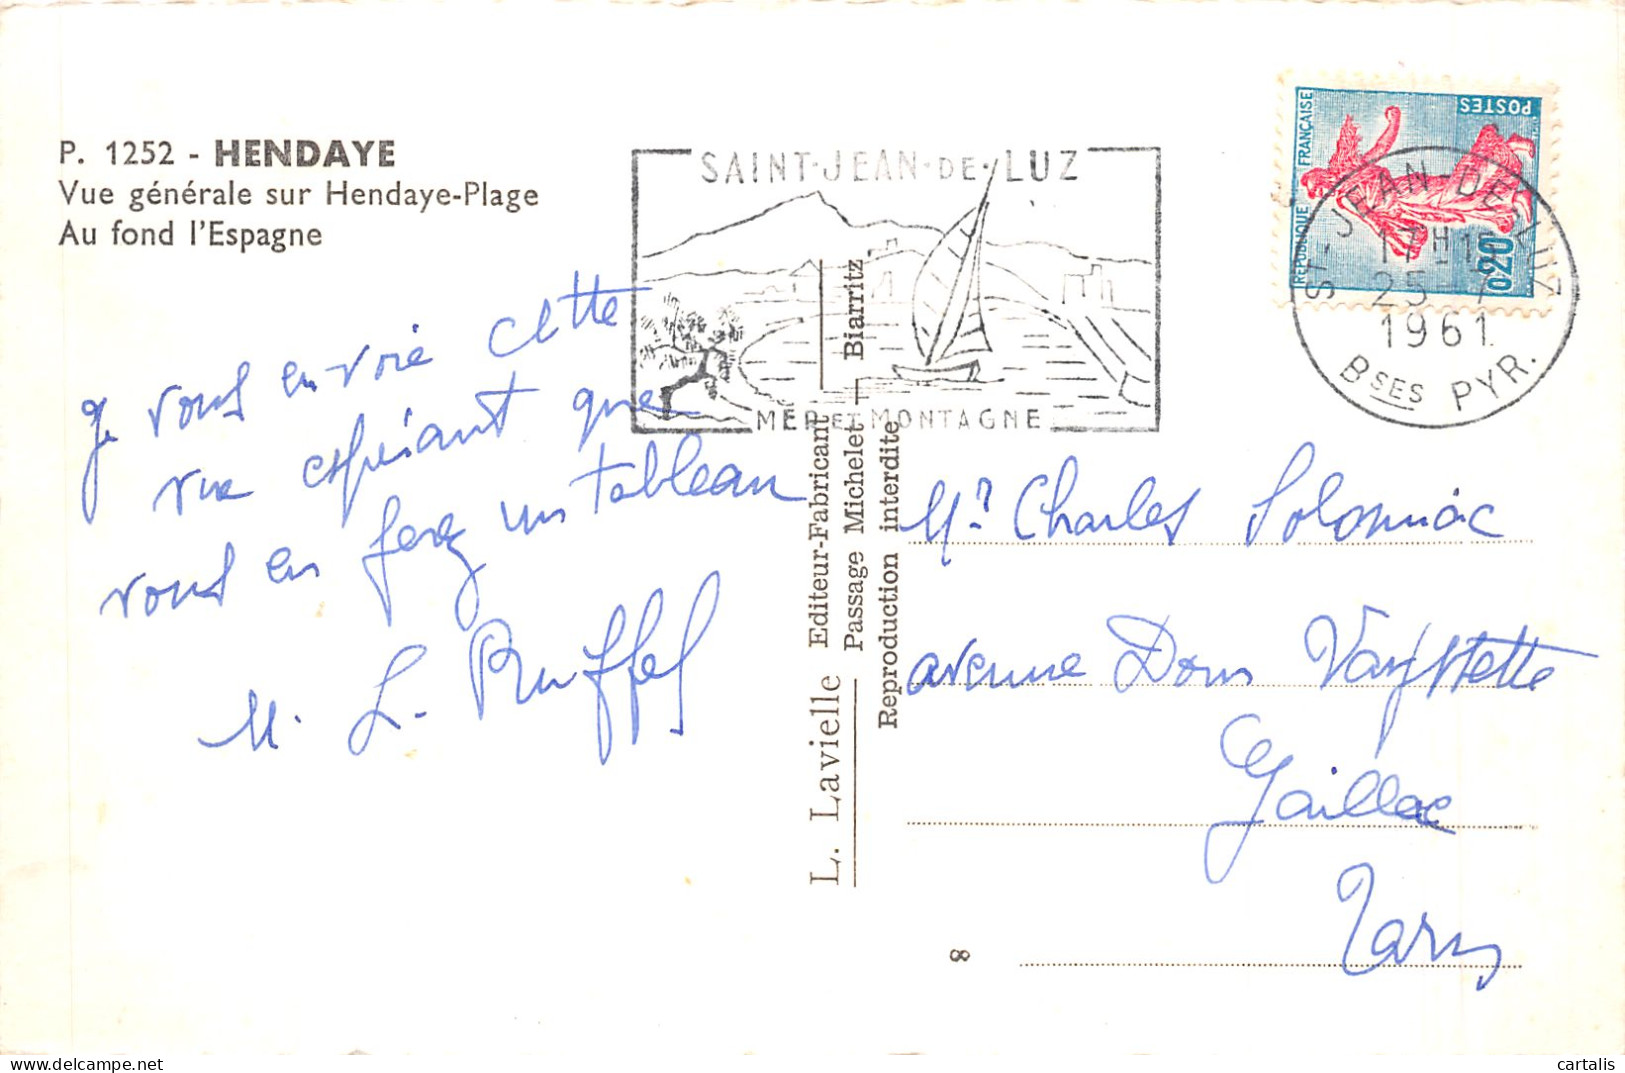 P. 1252 - HENDAYE
Vue générale sur Hendaye-Plage
Au fond l'Espagne
Je vous envoie cette
vue espérant que
vous en ferez un tableau
M. L. Ruffel
SAINT-JEAN-DE-LUZ
MER ET MONTAGNE
REPUBLIQUE FRANÇAISE
POSTES
0,20
ST-JEAN-DE-LUZ
17H15
25-7
1961
BSES PYR.
L. Lavielle Editeur-Fabricant
Passage Michelet - Biarritz
Reproduction interdite
Mr. Charles Solomiac
avenue Dom Vayssette
Gaillac
Tarn
8
cartalis